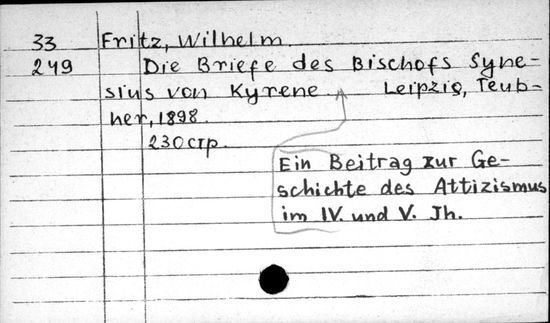 33 Fritz, Wilhelm
249 Die Briefe des Bischofs Syne-
sius von Kyrene Leipzig, Teub-
ner, 1898.
230 стр.
Ein Beitrag zur Ge-
schichte des Attizismus
im IV. und V. Jh.